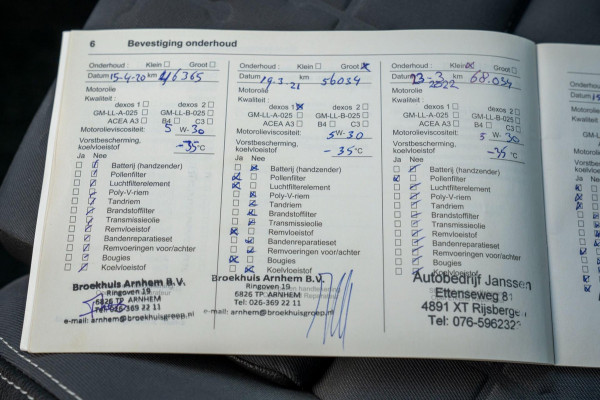 6 Bevestiging onderhoud
Onderhoud : Klein Groot
Datum 15-4-20 km 46365
Motorolie
Kwaliteit :
dexos 1 dexos 2
GM-LL-A-025 GM-LL-B-025
ACEA A3 B4 C3
Motorolieviscositeit: 5 W- 30
Vorstbescherming,
koelvloeistof -35 °C
Ja Nee
Batterij (handzender)
Pollenfilter
Luchtfilterelement
Poly-V-riem
Tandriem
Brandstoffilter
Transmissieolie
Remvloeistof
Bandenreparatieset
Remvoeringen voor/achter
Bougies
Koelvloeistof
Broekhuis Arnhem B.V.
Ringoven 19
6826 TP ARNHEM
Tel: 026-369 22 11
e-mail: arnhem@broekhuisgroep.nl
Onderhoud : Klein Groot
Datum 19-3-21 km 56034
Motorolie
Kwaliteit :
dexos 1 dexos 2
GM-LL-A-025 GM-LL-B-025
ACEA A3 B4 C3
Motorolieviscositeit: 5W-30
Vorstbescherming,
koelvloeistof -35 °C
Ja Nee
Batterij (handzender)
Pollenfilter
Luchtfilterelement
Poly-V-riem
Tandriem
Brandstoffilter
Transmissieolie
Remvloeistof
Bandenreparatieset
Remvoeringen voor/achter
Bougies
Koelvloeistof
Broekhuis Arnhem B.V.
Ringoven 19
6826 TP ARNHEM
Tel: 026-369 22 11
e-mail: arnhem@broekhuisgroep.nl
Onderhoud : Klein Groot
Datum 23-3-2022 km 68.034
Motorolie
Kwaliteit :
dexos 1 dexos 2
GM-LL-A-025 GM-LL-B-025
ACEA A3 B4 C3
Motorolieviscositeit: 5 W- 30
Vorstbescherming,
koelvloeistof -35 °C
Ja Nee
Batterij (handzender)
Pollenfilter
Luchtfilterelement
Poly-V-riem
Tandriem
Brandstoffilter
Transmissieolie
Remvloeistof
Bandenreparatieset
Remvoeringen voor/achter
Bougies
Koelvloeistof
Autobedrijf Janssen
Ettenseweg 81
4891 XT Rijsberge
Tel: 076-5962322